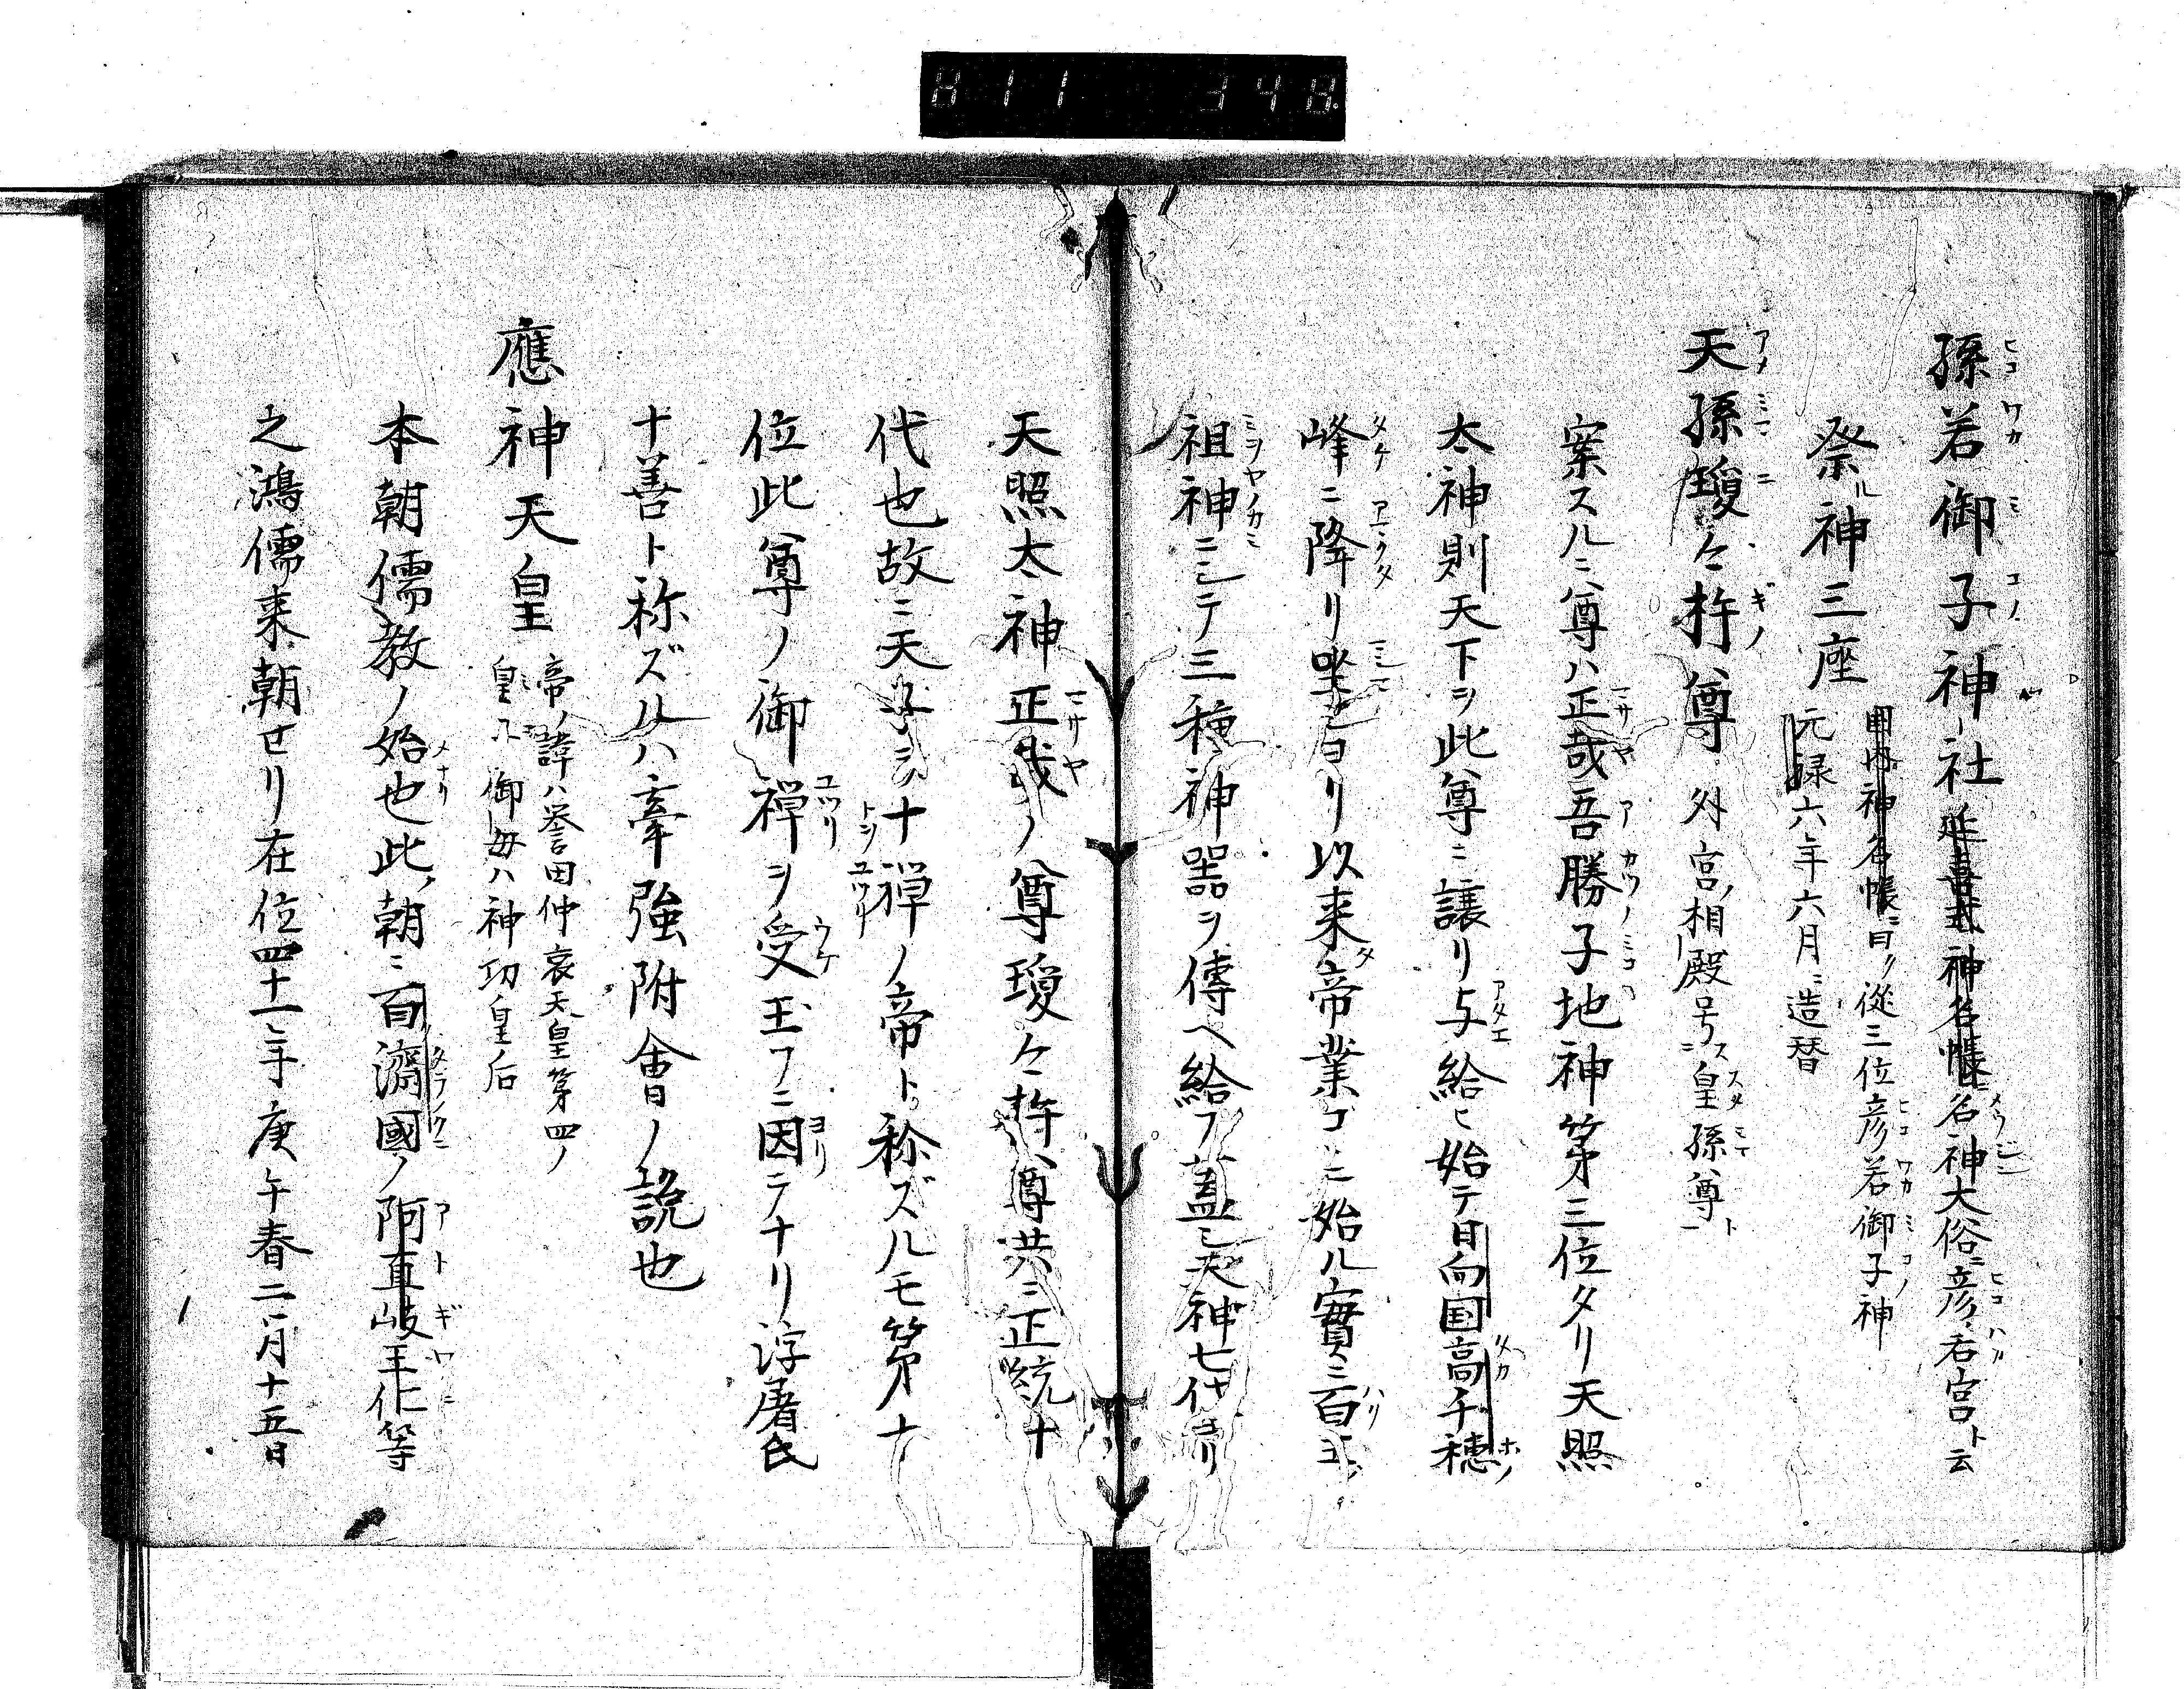 孫若御子神社延喜式神名帳ニ名神大俗ニ彦若宮ト云
祭ル神三座
国内神名帳ニ曰ク従三位彦若御子神
元禄六年六月ニ造替
天孫瓊々杵尊
外宮ノ相殿号ス皇孫尊ト
案スルニ尊ハ正哉吾勝子地神第三位タリ天照
太神則天下ヲ此尊ニ譲リ与給ヒ始テ日向国高千穂
峰ニ降リ坐シヨリ以来帝業コヽニ始ル實ニ百王ノ
祖神ニシテ三種神器ヲ傳ヘ給フ蓋シ天神七代ヨリ
天照太神正哉ノ尊瓊々杵尊共ニ正統十
代也故ニ天子ヲ十禅ノ帝ト称ズルモ第十
位此尊ノ御禅ヲ受玉フニ因テナリ浮屠氏
十善ト称ズルハ牽強附會ノ説也
應神天皇
帝ノ諱ハ誉田仲哀天皇第四ノ
皇子御母ハ神功皇后
本朝儒教ノ始也此ノ朝ニ百濟國ノ阿直岐王仁等
之鴻儒来朝セリ在位四十一年庚午春二月十五日